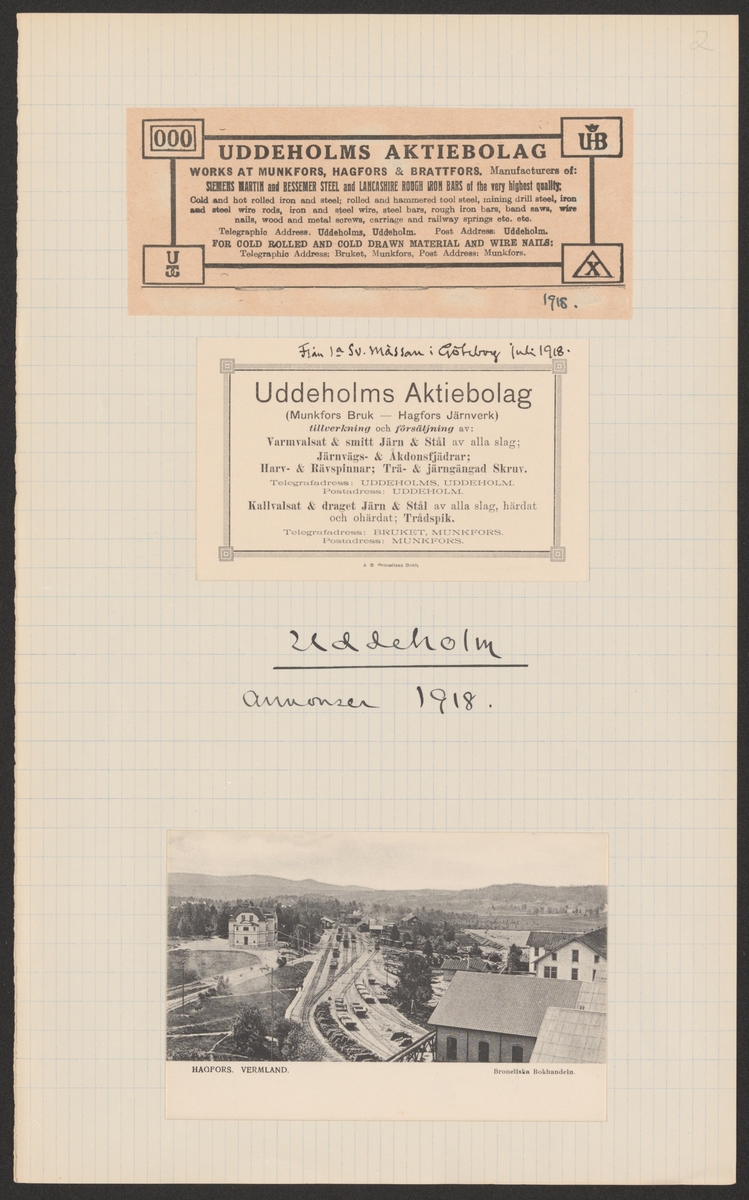 2
000
UHB
UDDEHOLMS AKTIEBOLAG
WORKS AT MUNKFORS, HAGFORS & BRATTFORS. Manufacturers of:
SIEMENS MARTIN and BESSEMER STEEL and LANCASHIRE ROUGH IRON BARS of the very highest quality;
Cold and hot rolled iron and steel; rolled and hammered tool steel, mining drill steel, iron
and steel wire rods, iron and steel wire, steel bars, rough iron bars, band saws, wire
nails, wood and metal screws, carriage and railway springs etc. etc.
Telegraphic Address: Uddeholms, Uddeholm. Post Address: Uddeholm.
FOR COLD ROLLED AND COLD DRAWN MATERIAL AND WIRE NAILS:
Telegraphic Address: Bruket, Munkfors, Post Address: Munkfors.
U
X
1918.
Från 1a Sv. Mässan i Göteborg juli 1918.
Uddeholms Aktiebolag
(Munkfors Bruk — Hagfors Järnverk)
tillverkning och försäljning av:
Varmvalsat & smitt Järn & Stål av alla slag;
Järnvägs- & Åkdonsfjädrar;
Harv- & Rävspinnar; Trä- & järngängad Skruv.
Telegrafadress: UDDEHOLMS, UDDEHOLM.
Postadress: UDDEHOLM.
Kallvalsat & draget Järn & Stål av alla slag, härdat
och ohärdat; Trådspik.
Telegrafadress: BRUKET, MUNKFORS.
Postadress: MUNKFORS.
Uddeholm
Annonser 1918.
HAGFORS. VERMLAND.
Broneliska Bokhandeln.